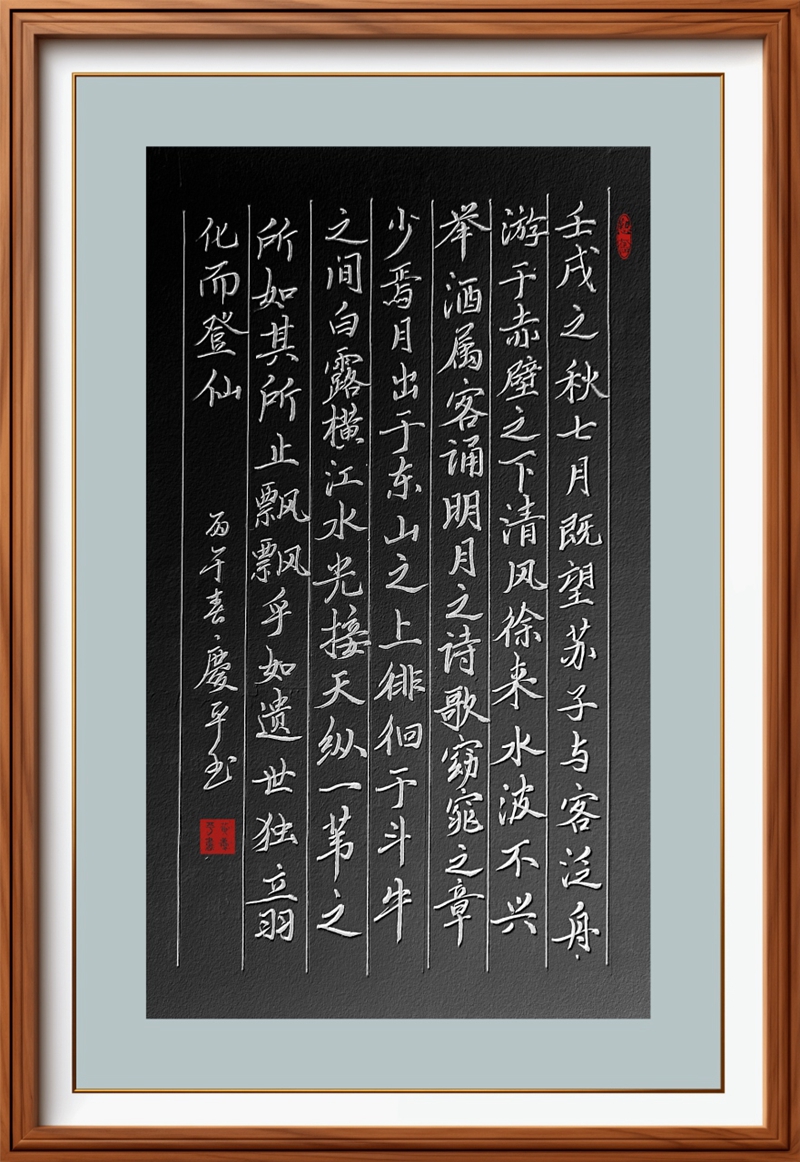 壬戌之秋七月既望苏子与客泛舟
游于赤壁之下清风徐来水波不兴
举酒属客诵明月之诗歌窈窕之章
少焉月出于东山之上徘徊于斗牛
之间白露横江水光接天纵一苇之
所如其所止飘飘乎如遗世独立羽
化而登仙
丙午春慶平